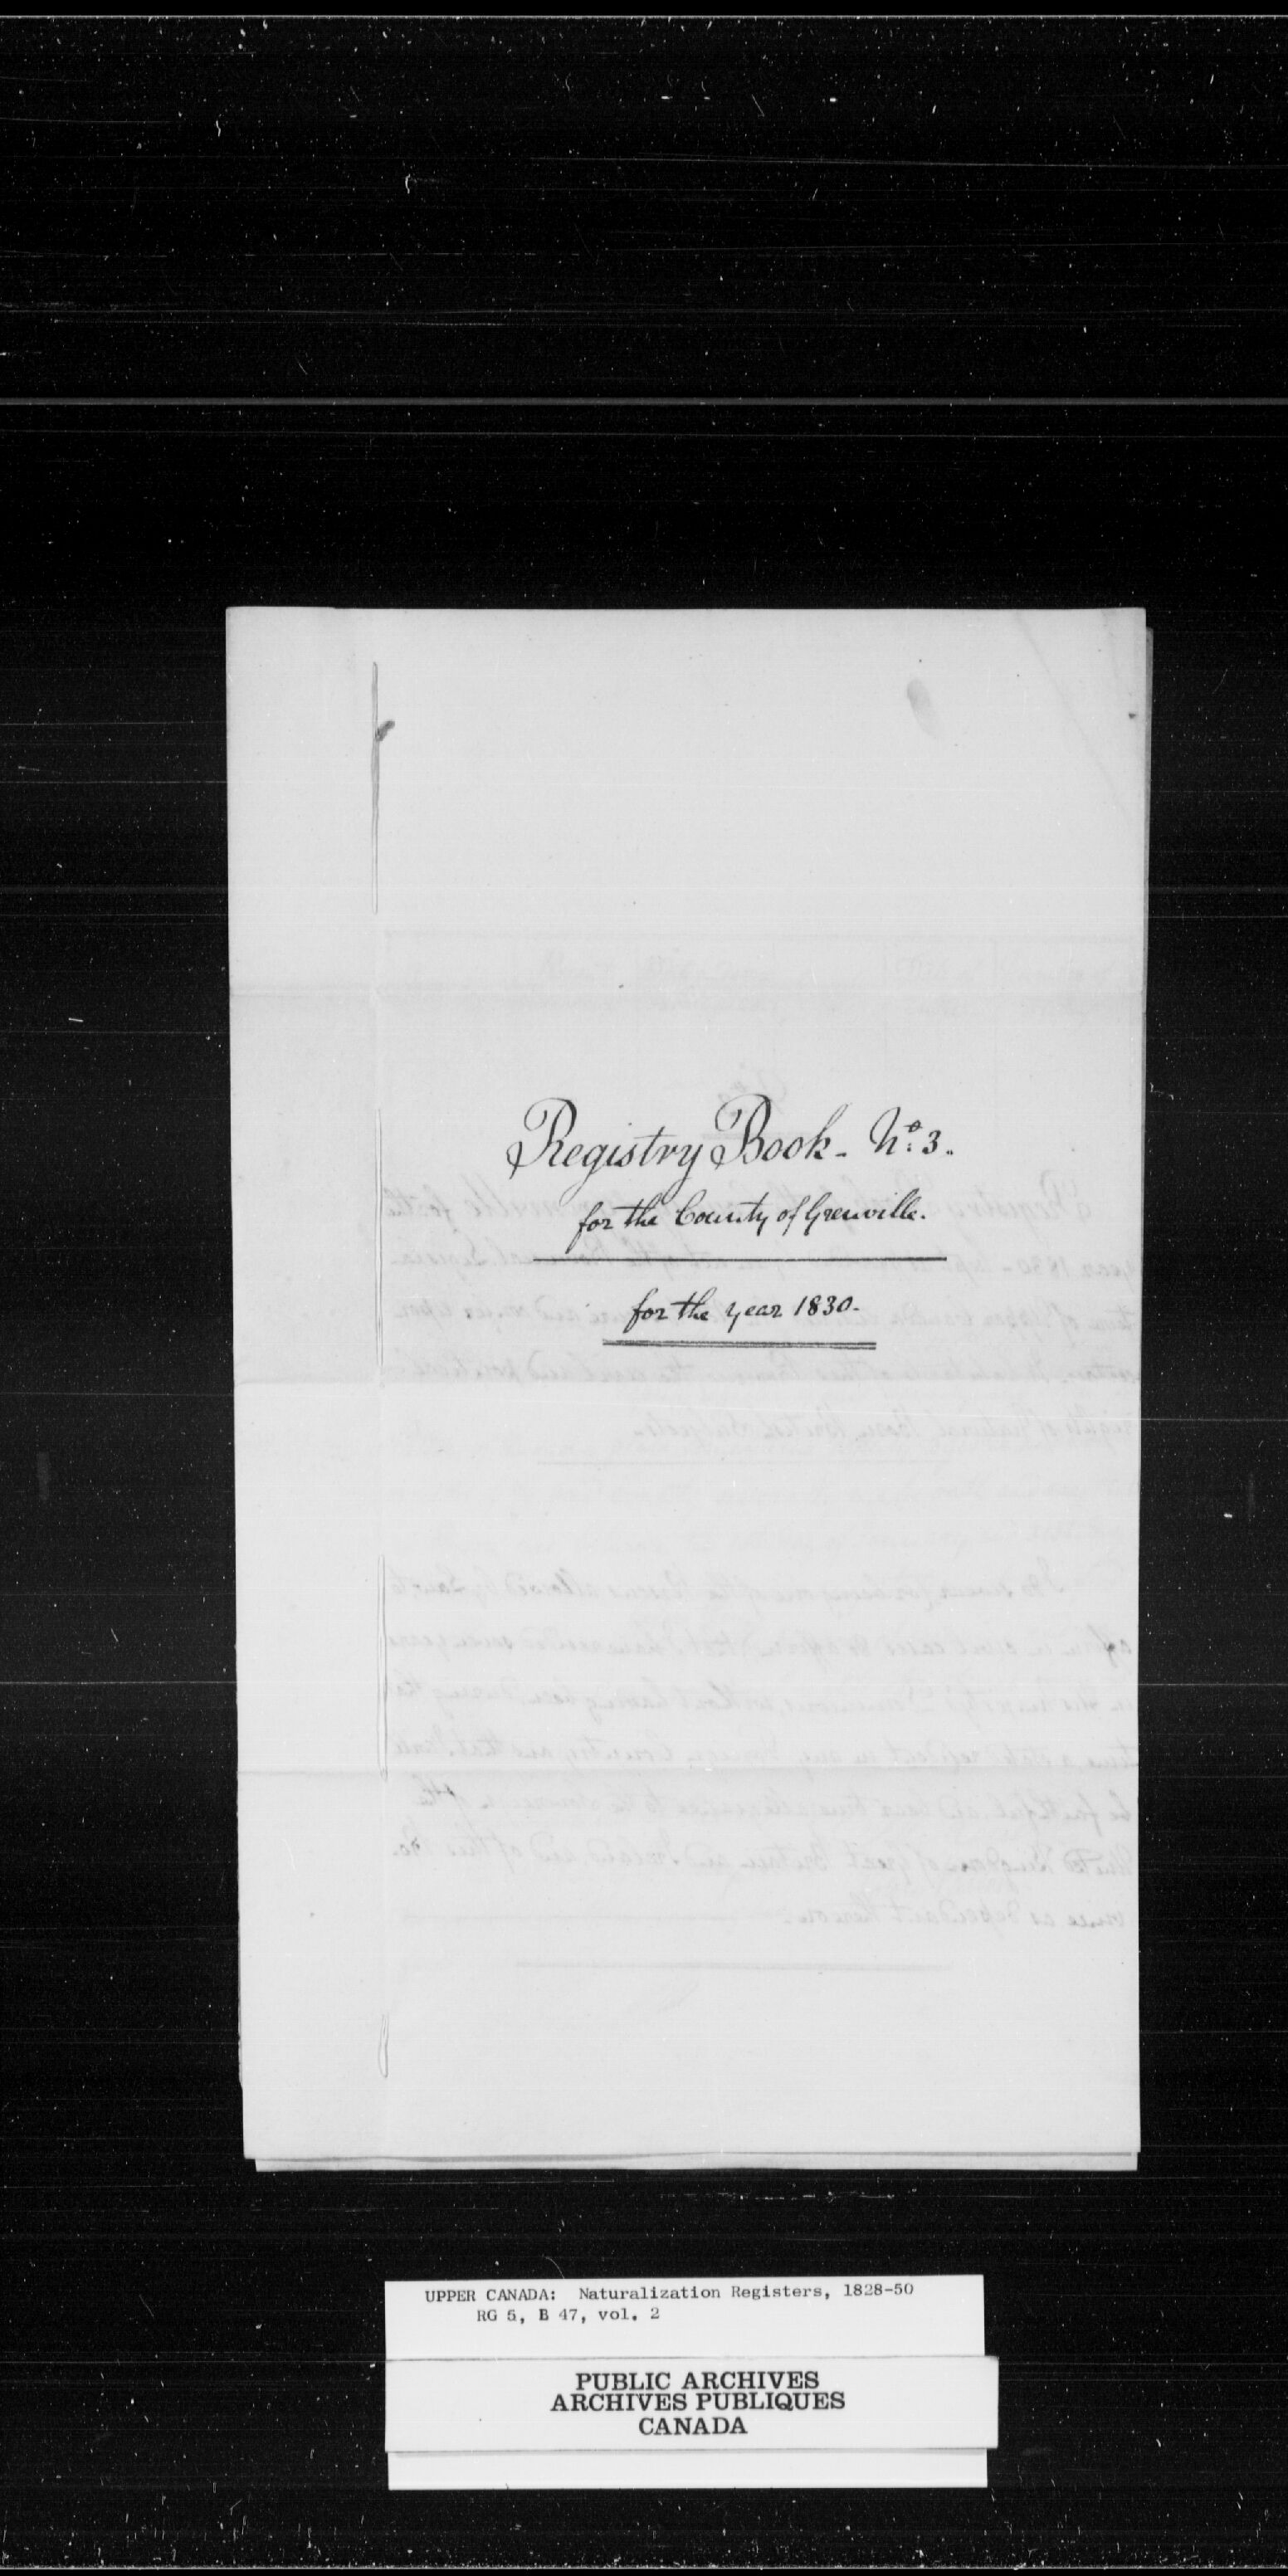 Registry Book - No. 3.
for the County of Grenville.
for the year 1830.
UPPER CANADA: Naturalization Registers, 1828-50
RG 5, B 47, vol. 2
PUBLIC ARCHIVES
ARCHIVES PUBLIQUES
CANADA